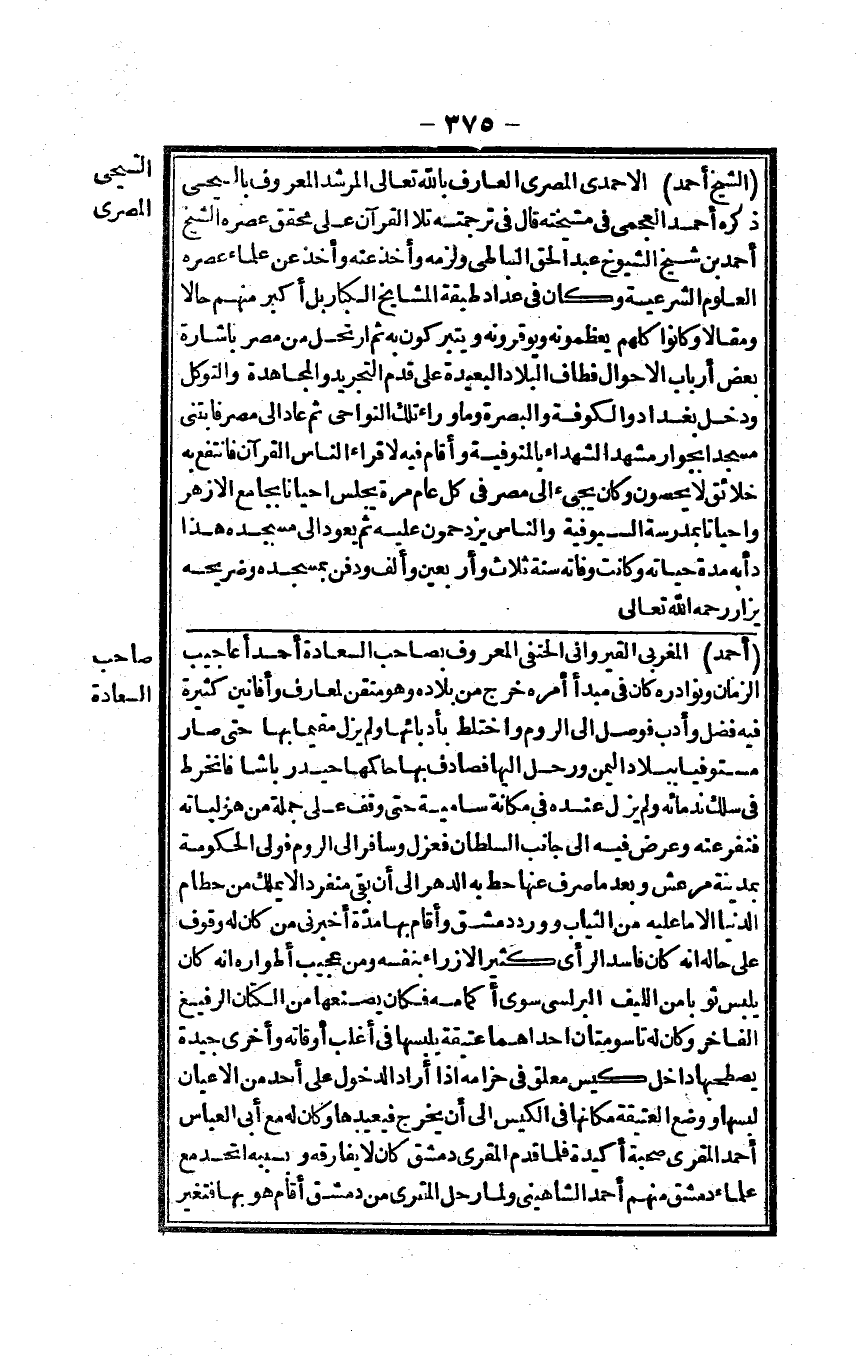 - ٣٧٥ -
السيحى
المصرى
(الشيخ أحمد) الاحمدى المصرى العارف بالله تعالى المرشد المعروف بالسيحى
ذكره أحمد العجمى فى مشيخته قال فى ترجمته تلا القرآن على محقق عصره الشيخ
أحمد بن شيخ الشيوخ عبد الحق السنباطى ولزمه وأخذ عنه وأخذ عن علماء عصره
العلوم الشرعية وكان فى عداد طبقة المشايخ الكبار بل أكبر منهم حالا
ومقالا وكانوا كلهم يعظمونه ويوقرونه ويتبركون به ثم ارتحل من مصر باشارة
بعض أرباب الاحوال فطاف البلاد البعيدة على قدم التجريد والمجاهدة والتوكل
ودخل بغداد والكوفة والبصرة وما وراء تلك النواحى ثم عاد الى مصر فابتنى
مسجدا بجوار مشهد الشهداء بالمنوفية وأقام فيه لاقراء الناس القرآن فانتفع به
خلائق لا يحصون وكان يجىء الى مصر فى كل عام مرة يجلس احيانا بجامع الازهر
واحيانا بمدرسة السيوفية والناس يزدحمون عليه ثم يعود الى مسجده هذا
دأبه مدة حياته وكانت وفاته سنة ثلاث وأربعين وألف ودفن بمسجده وضريحه
يزار رحمه الله تعالى
صاحب
السعادة
(أحمد) المغربى القيروانى الحنفى المعروف بصاحب السعادة أحد أعاجيب
الزمان ونوادره كان فى مبدأ أمره خرج من بلاده وهو متقن لمعارف وأفانين كثيرة
فيه فضل وأدب فوصل الى الروم واختلط بأدبائها ولم يزل مقيما بها حتى صار
مستوفيا ببلاد اليمن ورحل اليها فصادف بها حاكمها حيدر باشا فانخرط
فى سلك ندمائه ولم يزل عنده فى مكانة سامية حتى وقف على جملة من هزلياته
فنفر عنه وعرض فيه الى جانب السلطان فعزل وسافر الى الروم فولى الحكومة
بمدينة مرعش وبعد ما صرف عنها حط به الدهر الى أن بقى منفردا لا يملك من حطام
الدنيا الا ما عليه من الثياب وورد دمشق وأقام بها مدّة أخبرنى من كان له وقوف
على حاله انه كان فاسد الرأى كثير الازراء بنفسه ومن عجيب أطواره انه كان
يلبس ثوبا من الليف البرلسى سوى أكمامه فكان يصنعها من الكتان الرفيع
الفاخر وكان له تاسومتان احداهما عتيقة يلبسها فى أغلب أوقاته وأخرى جيدة
يصطحبها داخل كيس معلق فى حزامه اذا أراد الدخول على أحد من الاعيان
لبسها ووضع العتيقة مكانها فى الكيس الى أن يخرج فيعيدها وكان له مع أبى العباس
أحمد المقرى صحبة أكيدة فلما قدم المقرى دمشق كان لا يفارقه وبسببه اتحد مع
علماء دمشق منهم أحمد الشاهينى ولما رحل المقرى من دمشق أقام هو بها فتغير